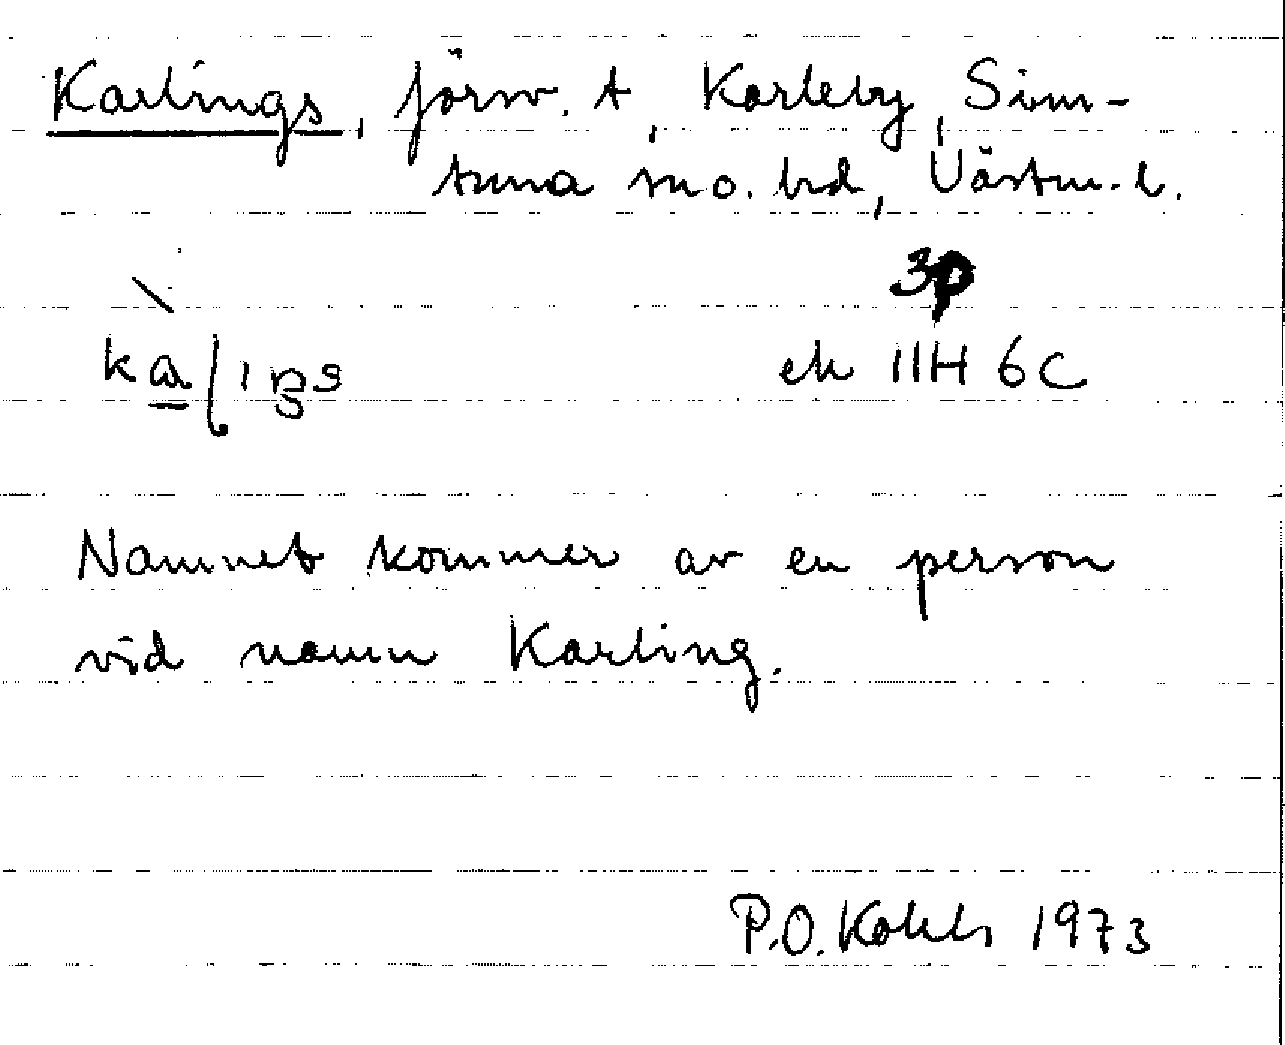 Karlings, försv. t, Karleby, Sim-
tuna sn o. hd, Västm. l.
3p
ek 11H 6C
Namnet kommer av en person
vid namn Karling.
P.O. Kohls 1973